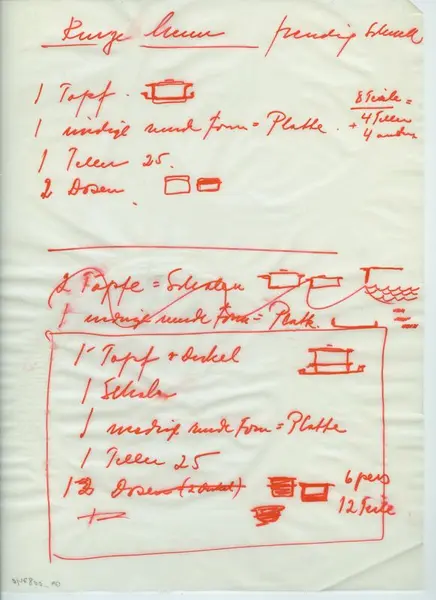 1 Topf
8 Teile =
1 niedrige runde Form = Platte.
+ 4 Teller
1 Teller 25.
2 Dosen
2 Töpfe = Schalen
1 niedrige runde Form = Platte.
1 Topf + Deckel
1 Schale
1 niedrige runde Form = Platte
1 Teller 25
1 Dosen (2 Deckel)
6 pers
12 Teile